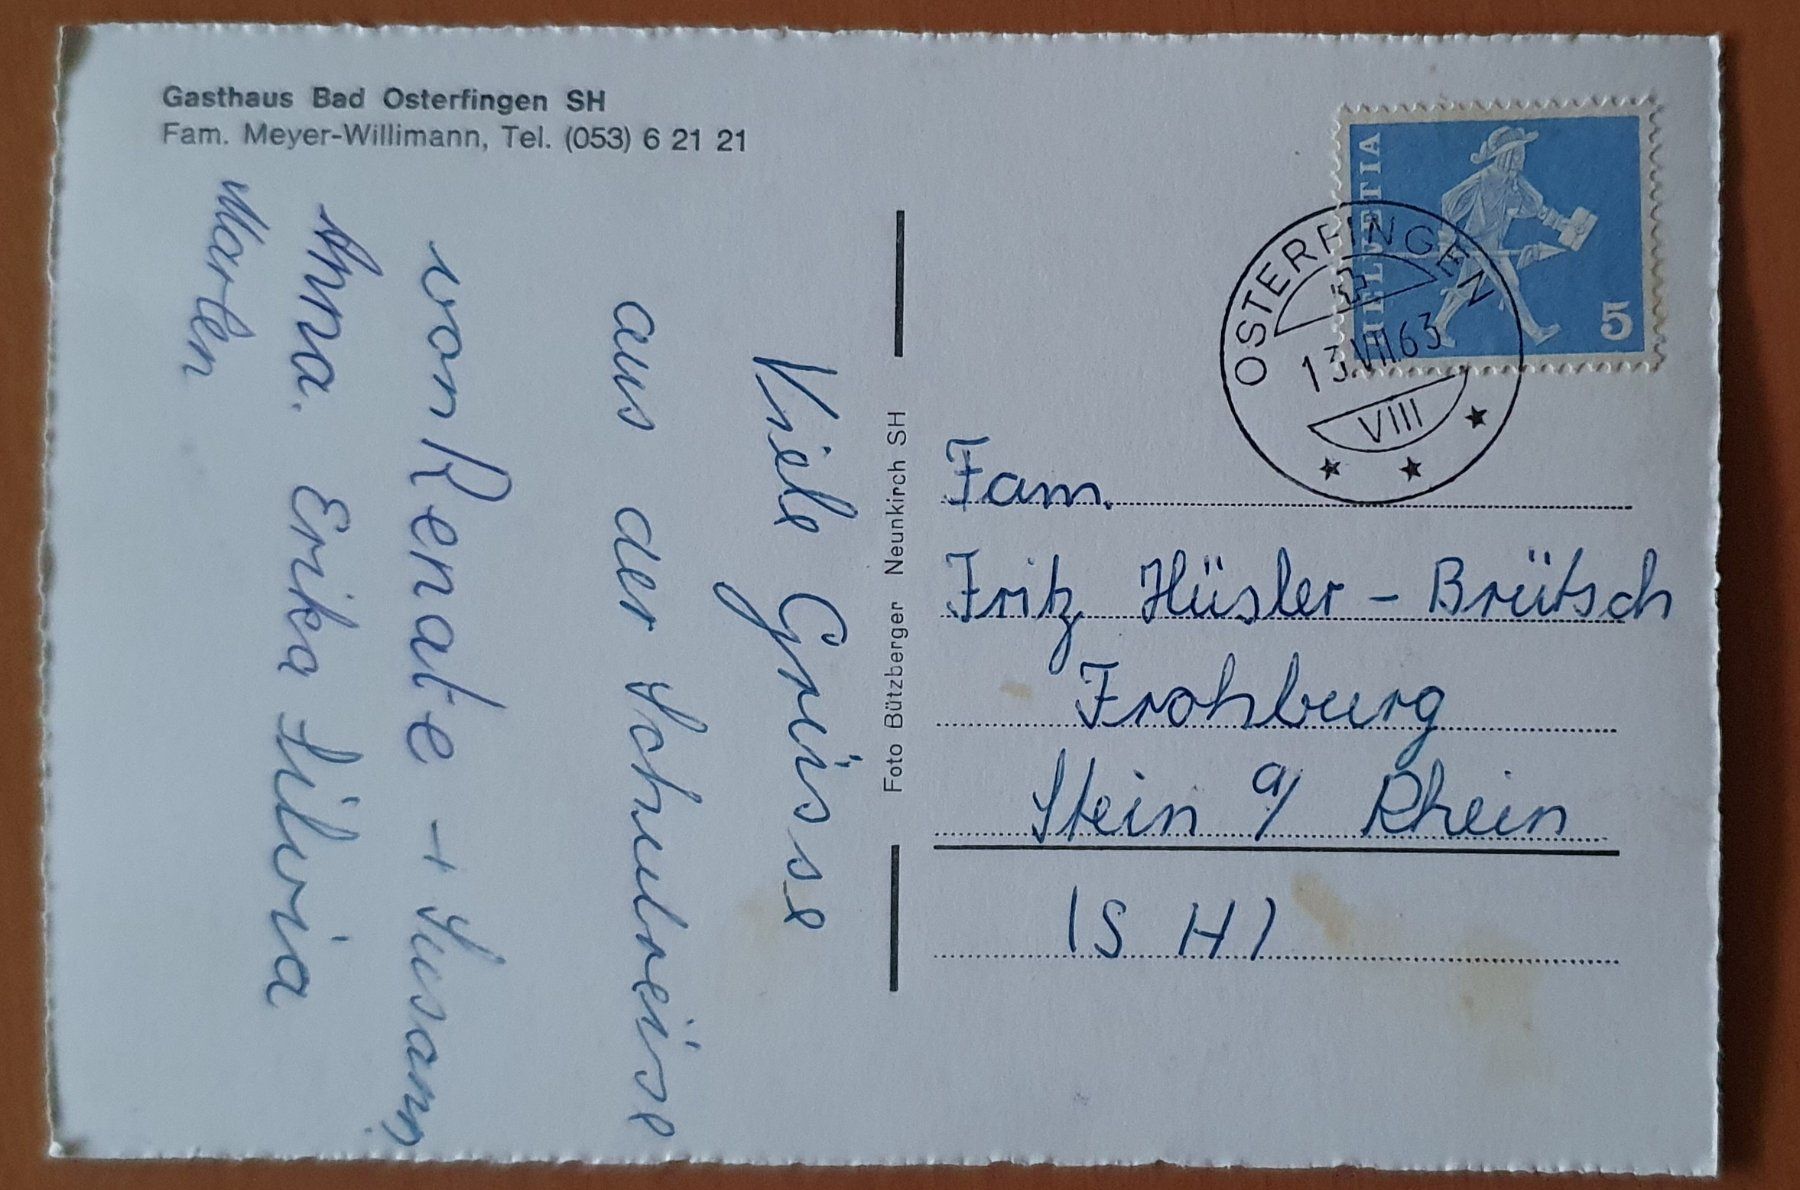 Gasthaus Bad Osterfingen SH
Fam. Meyer-Willimann, Tel. (053) 6 21 21
Viele Grüsse
aus der Schulreise
von Renate + Susann,
Anna. Erika Silvia
Marlen
Foto Bützberger Neunkirch SH
HELVETIA
5
OSTERFINGEN
13.VII.63
VIII
Fam.
Fritz Hüsler - Brütsch
Frohburg
Stein a/ Rhein
(SH)